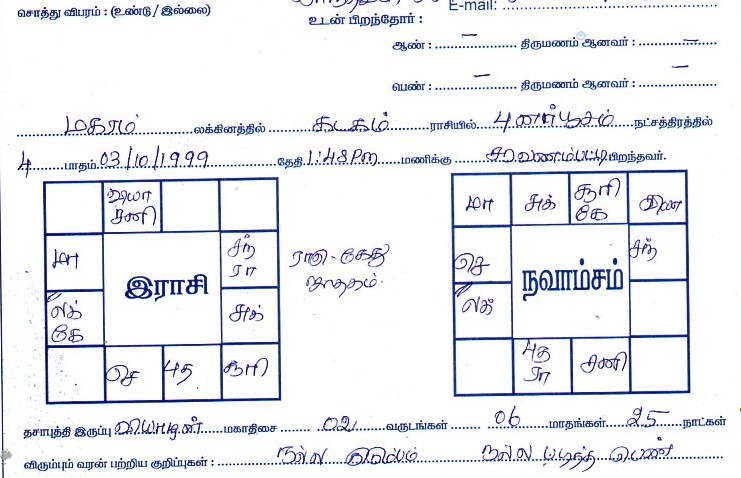 சொத்து விபரம் : (உண்டு / இல்லை)
E-mail:
உடன் பிறந்தோர் :
ஆண் : — திருமணம் ஆனவர் : —
பெண் : — திருமணம் ஆனவர் : —
மகரம் லக்கினத்தில் கடகம் ராசியில் புனர்பூசம் நட்சத்திரத்தில்
4 பாதம் 03/10/1999 தேதி 1:48 PM மணிக்கு சரவணம்பட்டி பிறந்தவர்.
வியா சனி
மா சந் ரா
இராசி
லக் கே சுக்
செ புத சூரி
ராகு - கேது
ஜாதகம்.
மா சுக் சூரி கே வியா
செ சந்
நவாம்சம்
லக்
புத ரா சனி
தசாபுத்தி இருப்பு வியாழன் மகாதிசை 02 வருடங்கள் 06 மாதங்கள் 25 நாட்கள்
விரும்பும் வரன் பற்றிய குறிப்புகள் : நல்ல நல்ல படித்த பெண்